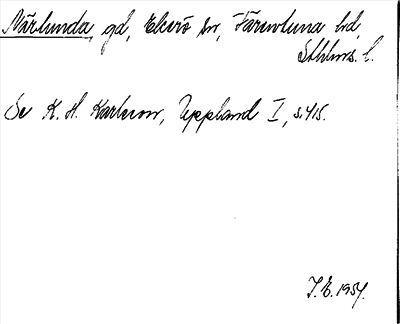 Närlunda, gd, Ekerö sn, Färentuna hd,
Sthlms. l.
Se K. H. Karlsson, Uppland I, s. 415.
J. E. 1954.